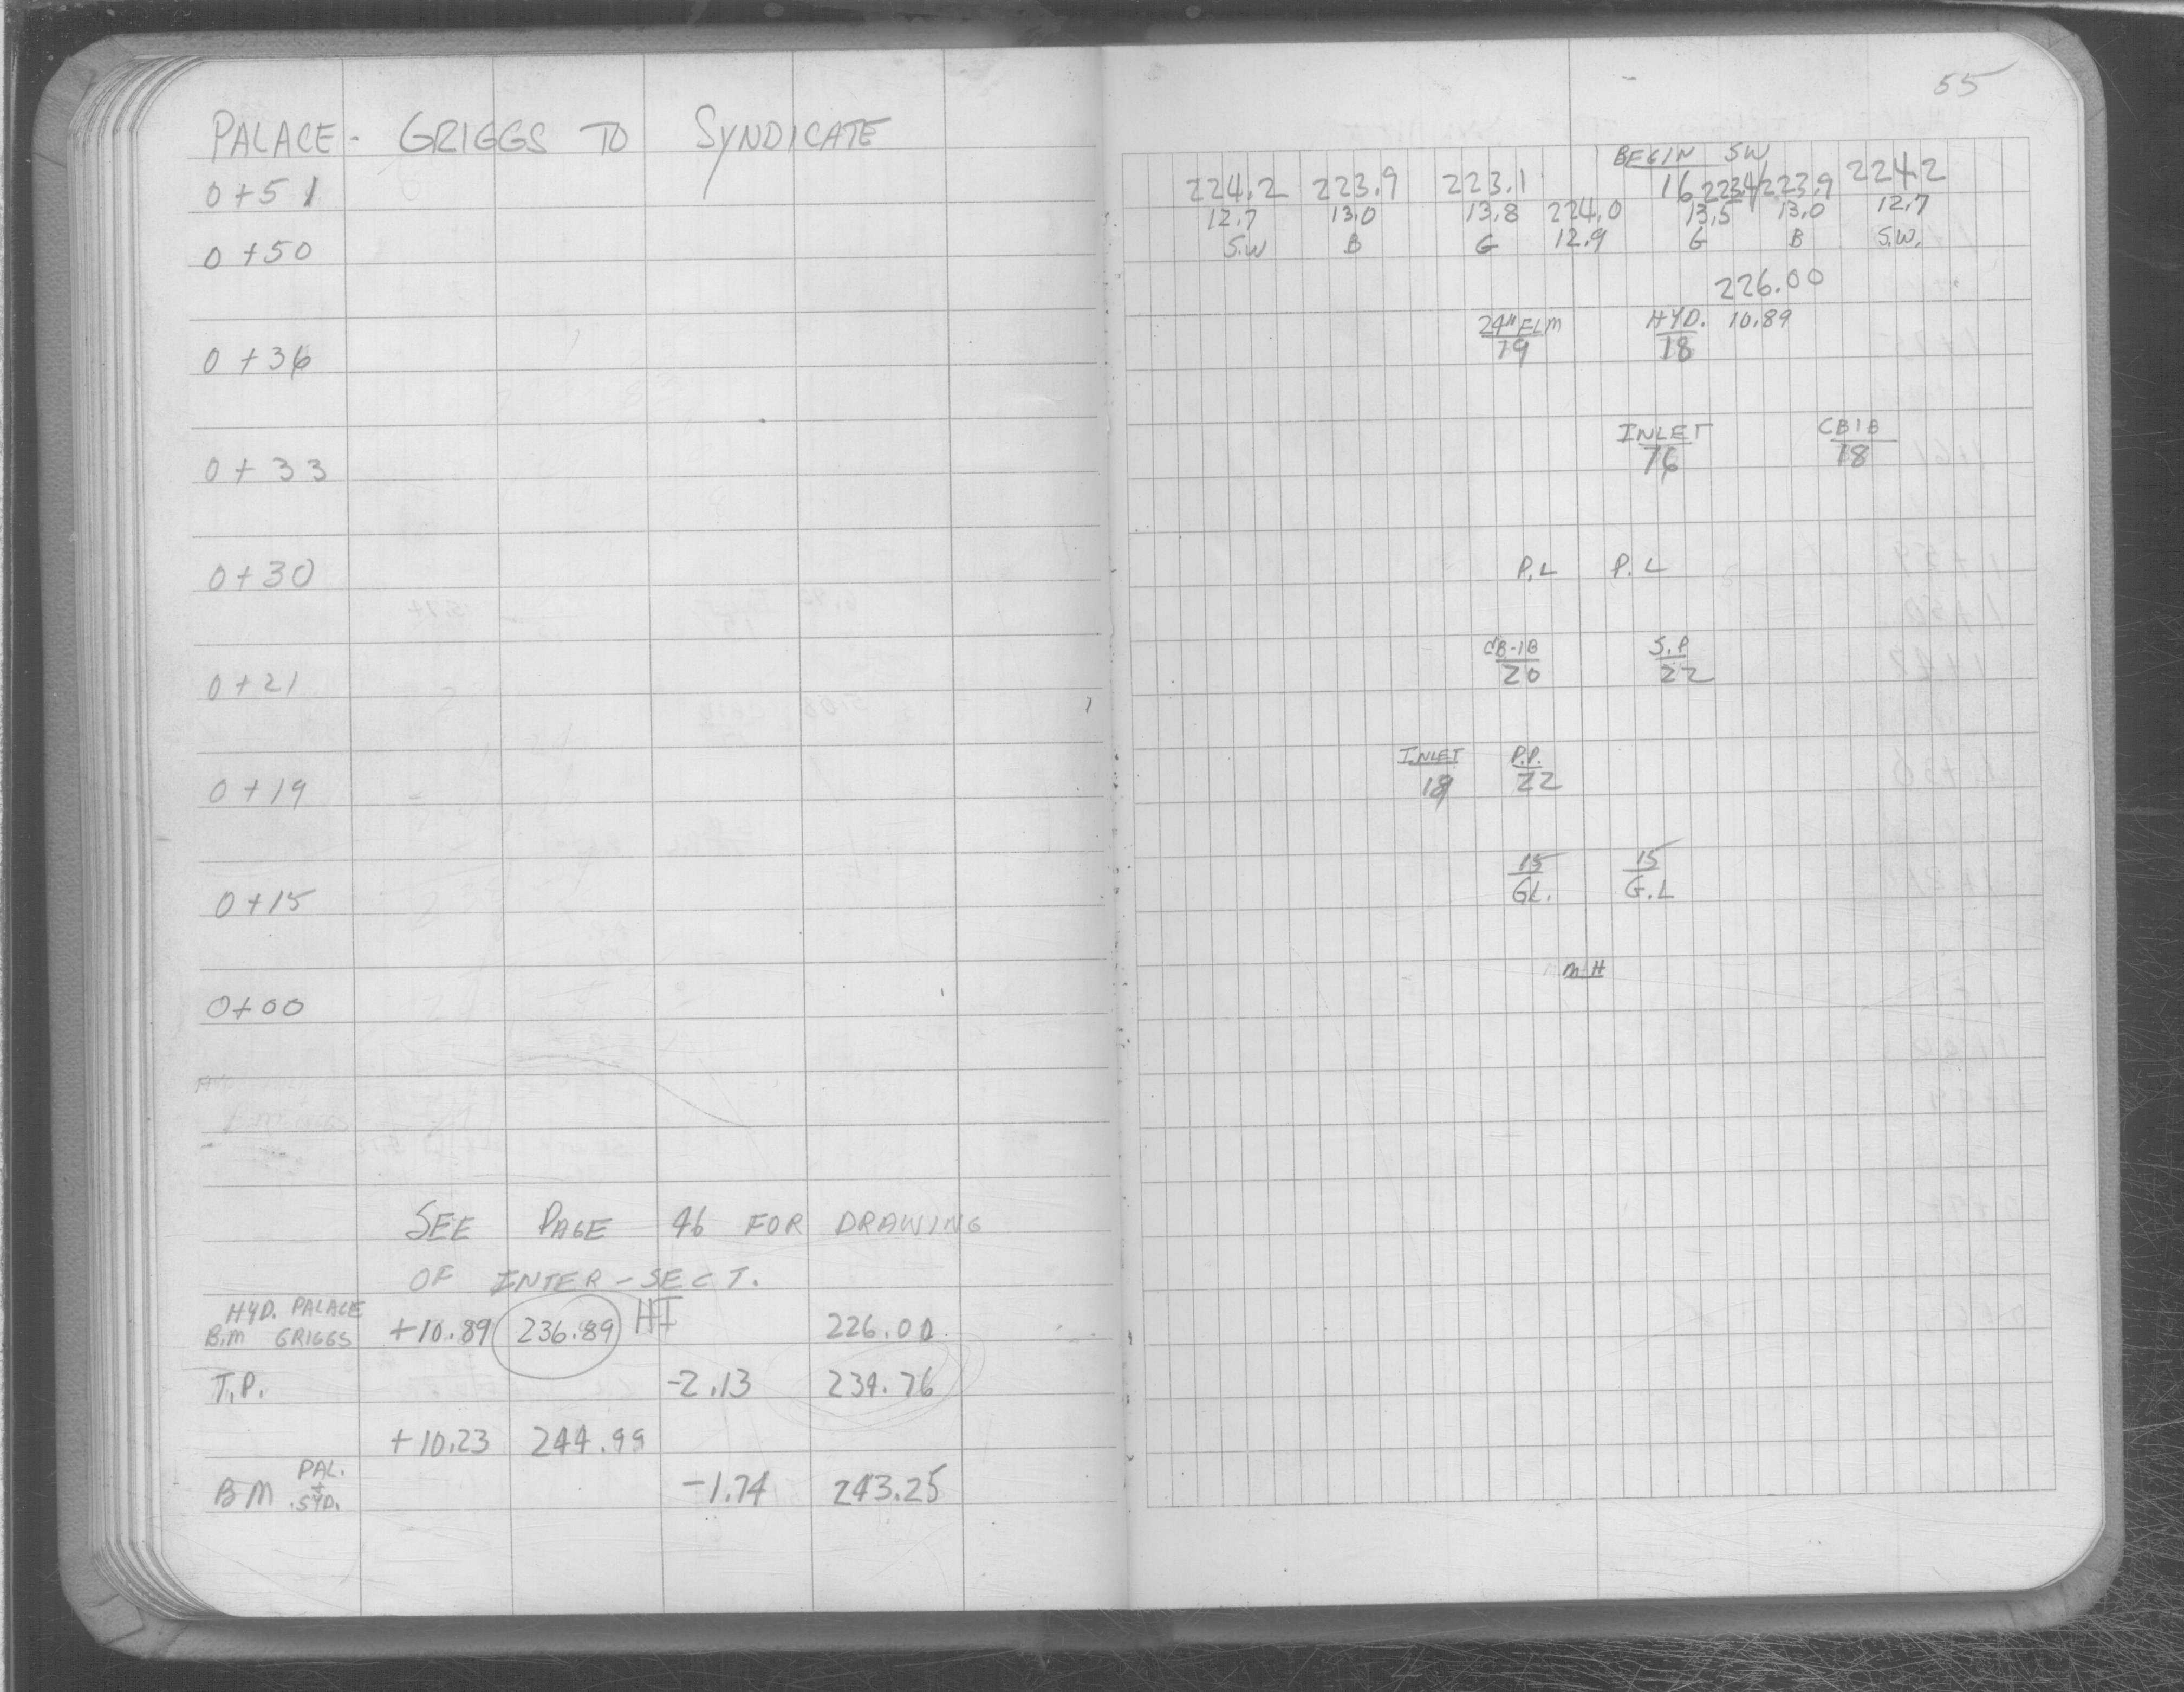 PALACE - GRIGGS TO SYNDICATE
0+51
0+50
0+36
0+33
0+30
0+21
0+19
0+15
0+00
SEE PAGE 46 FOR DRAWING
OF INTER-SECT.
HYD. PALACE
B.M GRIGGS +10.89 236.89 HI 226.00
T.P. -2.13 234.76
+10.23 244.99
BM PAL. + SYD. -1.74 243.25
55
BEGIN SW
224.2 223.9 223.1 16 223.4 223.9 224.2
12.7 13.0 13.8 224.0 13.5 13.0 12.7
S.W B G 12.9 G B S.W.
226.00
24" ELM HYD. 10.89
19 18
INLET CB1B
16 18
P.L P.L
CB-1B S.P
20 22
INLET P.P.
18 22
15 15
GL. G.L
MH